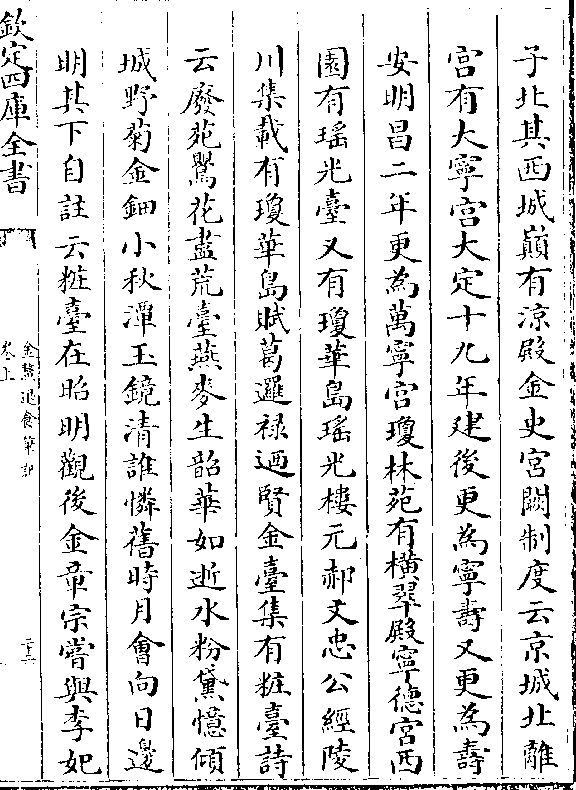 子北其西城巔有涼殿金史宮闕制度云京城北離
宮有大寧宮大定十九年建後更為寧壽又更為壽
安明昌二年更為萬寧宮瓊林苑有橫翠殿寧德宮西
園有瑤光臺又有瓊華島瑤光樓元郝文忠公經陵
川集載有瓊華島賦葛邏祿迺賢金臺集有粧臺詩
云廢苑鸎花盡荒臺燕麥生韶華如逝水粉黛憶傾
城野菊金鈿小秋潭玉鏡清誰憐舊時月曾向日邊
明其下自註云粧臺在昭明觀後金章宗嘗與李妃
欽定四庫全書
金鰲退食筆記
卷上
二十二